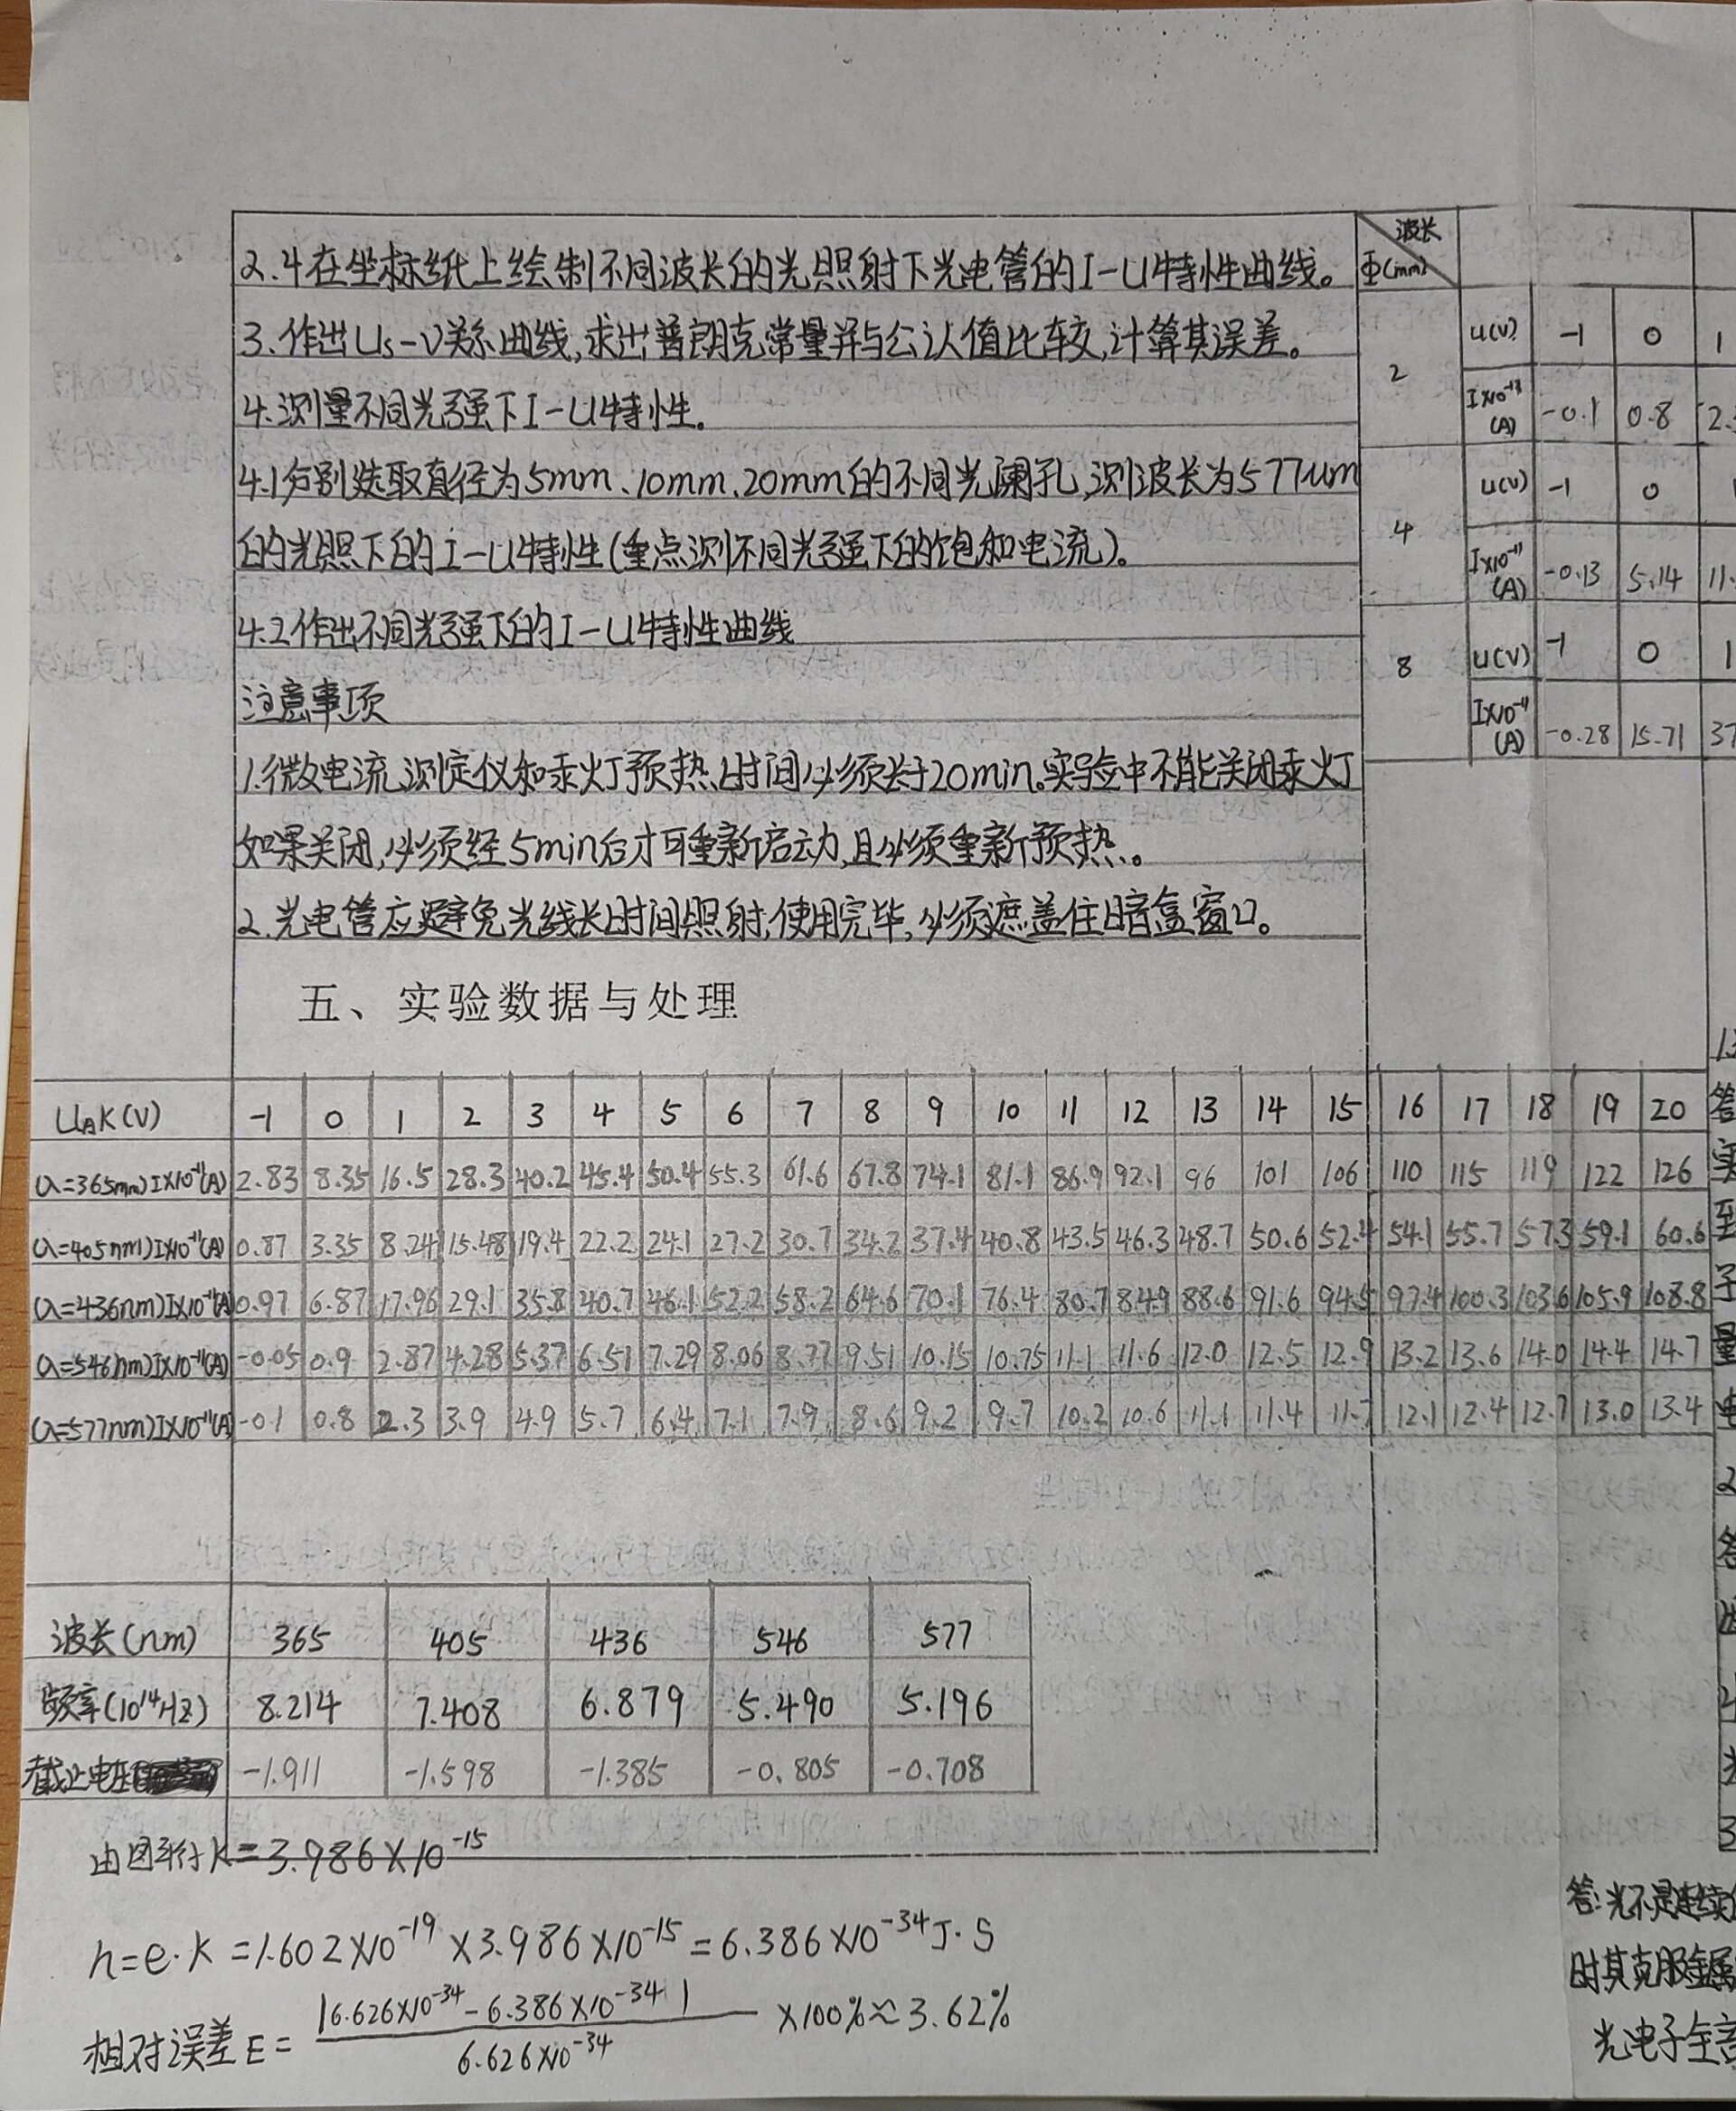 2.4在坐标纸上绘制不同波长的光照射下光电管的I-U特性曲线。
3.作出Us-ν关系曲线,求出普朗克常量并与公认值比较,计算其误差。
4.测量不同光强下I-U特性。
4.1分别选取直径为5mm、10mm、20mm的不同光阑孔,测波长为577um
的光照下的I-U特性(重点测不同光强下的饱和电流)。
4.2作出不同光强下的I-U特性曲线
注意事项
1.微电流测定仪和汞灯预热时间必须长于20min。实验中不能关闭汞灯
如果关闭,必须经5min后才可重新启动,且必须重新预热。
2.光电管应避免光线长时间照射,使用完毕,必须遮盖住暗盒窗口。
波长
Φ(mm)
2 U(V) -1 0 1
(A) -0.1 0.8 2.
4 U(V) -1 0
I×10⁻¹¹(A) -0.13 5.14 11.
8 U(V) -1 0 1
I×10⁻¹¹(A) -0.28 15.71 37
五、实验数据与处理
UAK(V) -1 0 1 2 3 4 5 6 7 8 9 10 11 12 13 14 15 16 17 18 19 20
(λ=365mm)I×10⁻¹¹(A) 2.83 8.35 16.5 28.3 40.2 45.4 50.4 55.3 61.6 67.8 74.1 81.1 86.9 92.1 96 101 106 110 115 119 122 126
(λ=405nm)I×10⁻¹¹(A) 0.87 3.35 8.24 15.48 19.4 22.2 24.1 27.2 30.7 34.2 37.4 40.8 43.5 46.3 48.7 50.6 52.4 54.1 55.7 57.3 59.1 60.6
(λ=436nm)I×10⁻¹¹(A) 0.97 6.87 17.96 29.1 35.8 40.7 46.1 52.2 58.2 64.6 70.1 76.4 80.7 84.9 88.6 91.6 94.5 97.4 100.3 103.6 105.9 108.8
(λ=546nm)I×10⁻¹¹(A) -0.05 0.9 2.87 4.28 5.37 6.51 7.29 8.06 8.77 9.51 10.15 10.75 11.1 11.6 12.0 12.5 12.9 13.2 13.6 14.0 14.4 14.7
(λ=577nm)I×10⁻¹¹(A) -0.1 0.8 2.3 3.9 4.9 5.7 6.4 7.1 7.9 8.6 9.2 9.7 10.2 10.6 11.1 11.4 11.7 12.1 12.4 12.7 13.0 13.4
波长(nm) 365 405 436 546 577
频率(10¹⁴Hz) 8.214 7.408 6.879 5.490 5.196
截止电压 -1.911 -1.598 -1.385 -0.805 -0.708
由图可得K=3.986×10⁻¹⁵
h=e·K=1.602×10⁻¹⁹×3.986×10⁻¹⁵=6.386×10⁻³⁴J·S
相对误差E=|6.626×10⁻³⁴-6.386×10⁻³⁴|/6.626×10⁻³⁴ ×100%≈3.62%
答:光不是连续
时其克服金属
光电子全